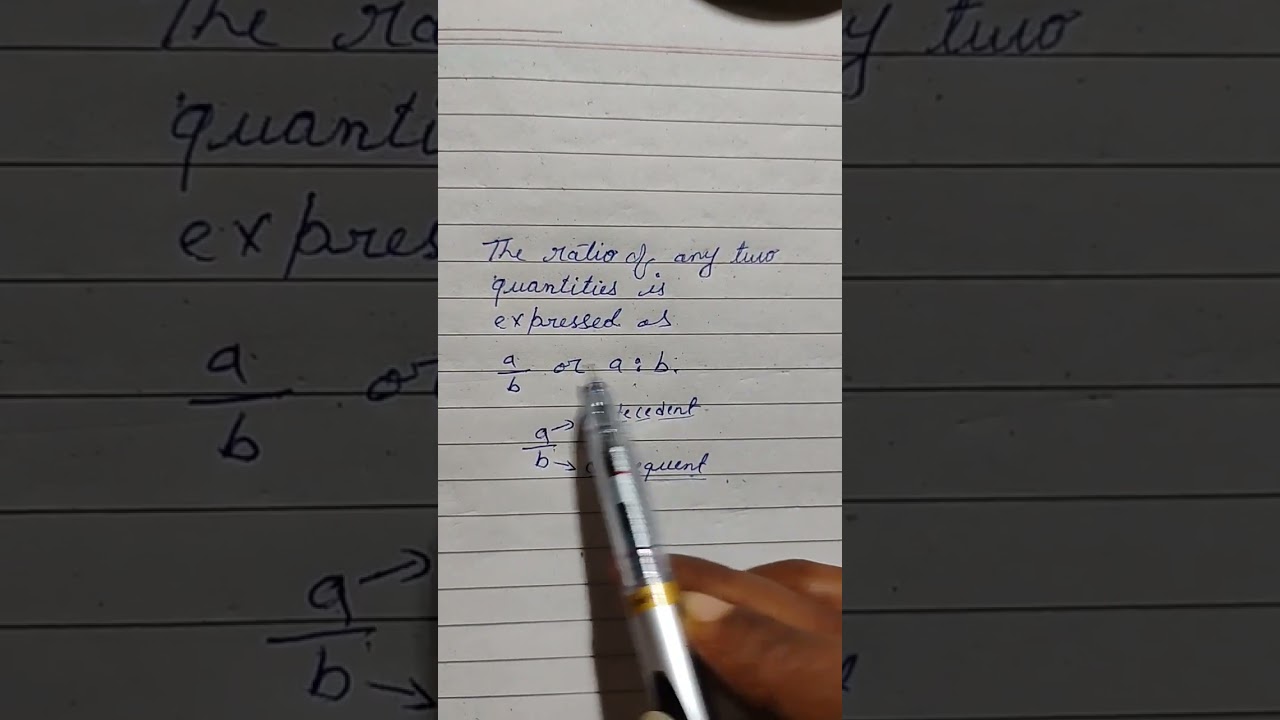 The ratio of any two
quantities is
expressed as
a/b or a : b.
a → tecedent
b → quent